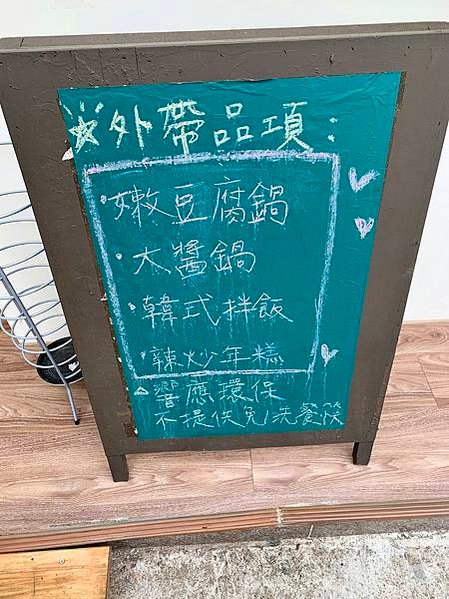 ☆外帶品項:
·嫩豆腐鍋
·大醬鍋
·韓式拌飯
·辣炒年糕
△響應環保
不提供免洗餐筷